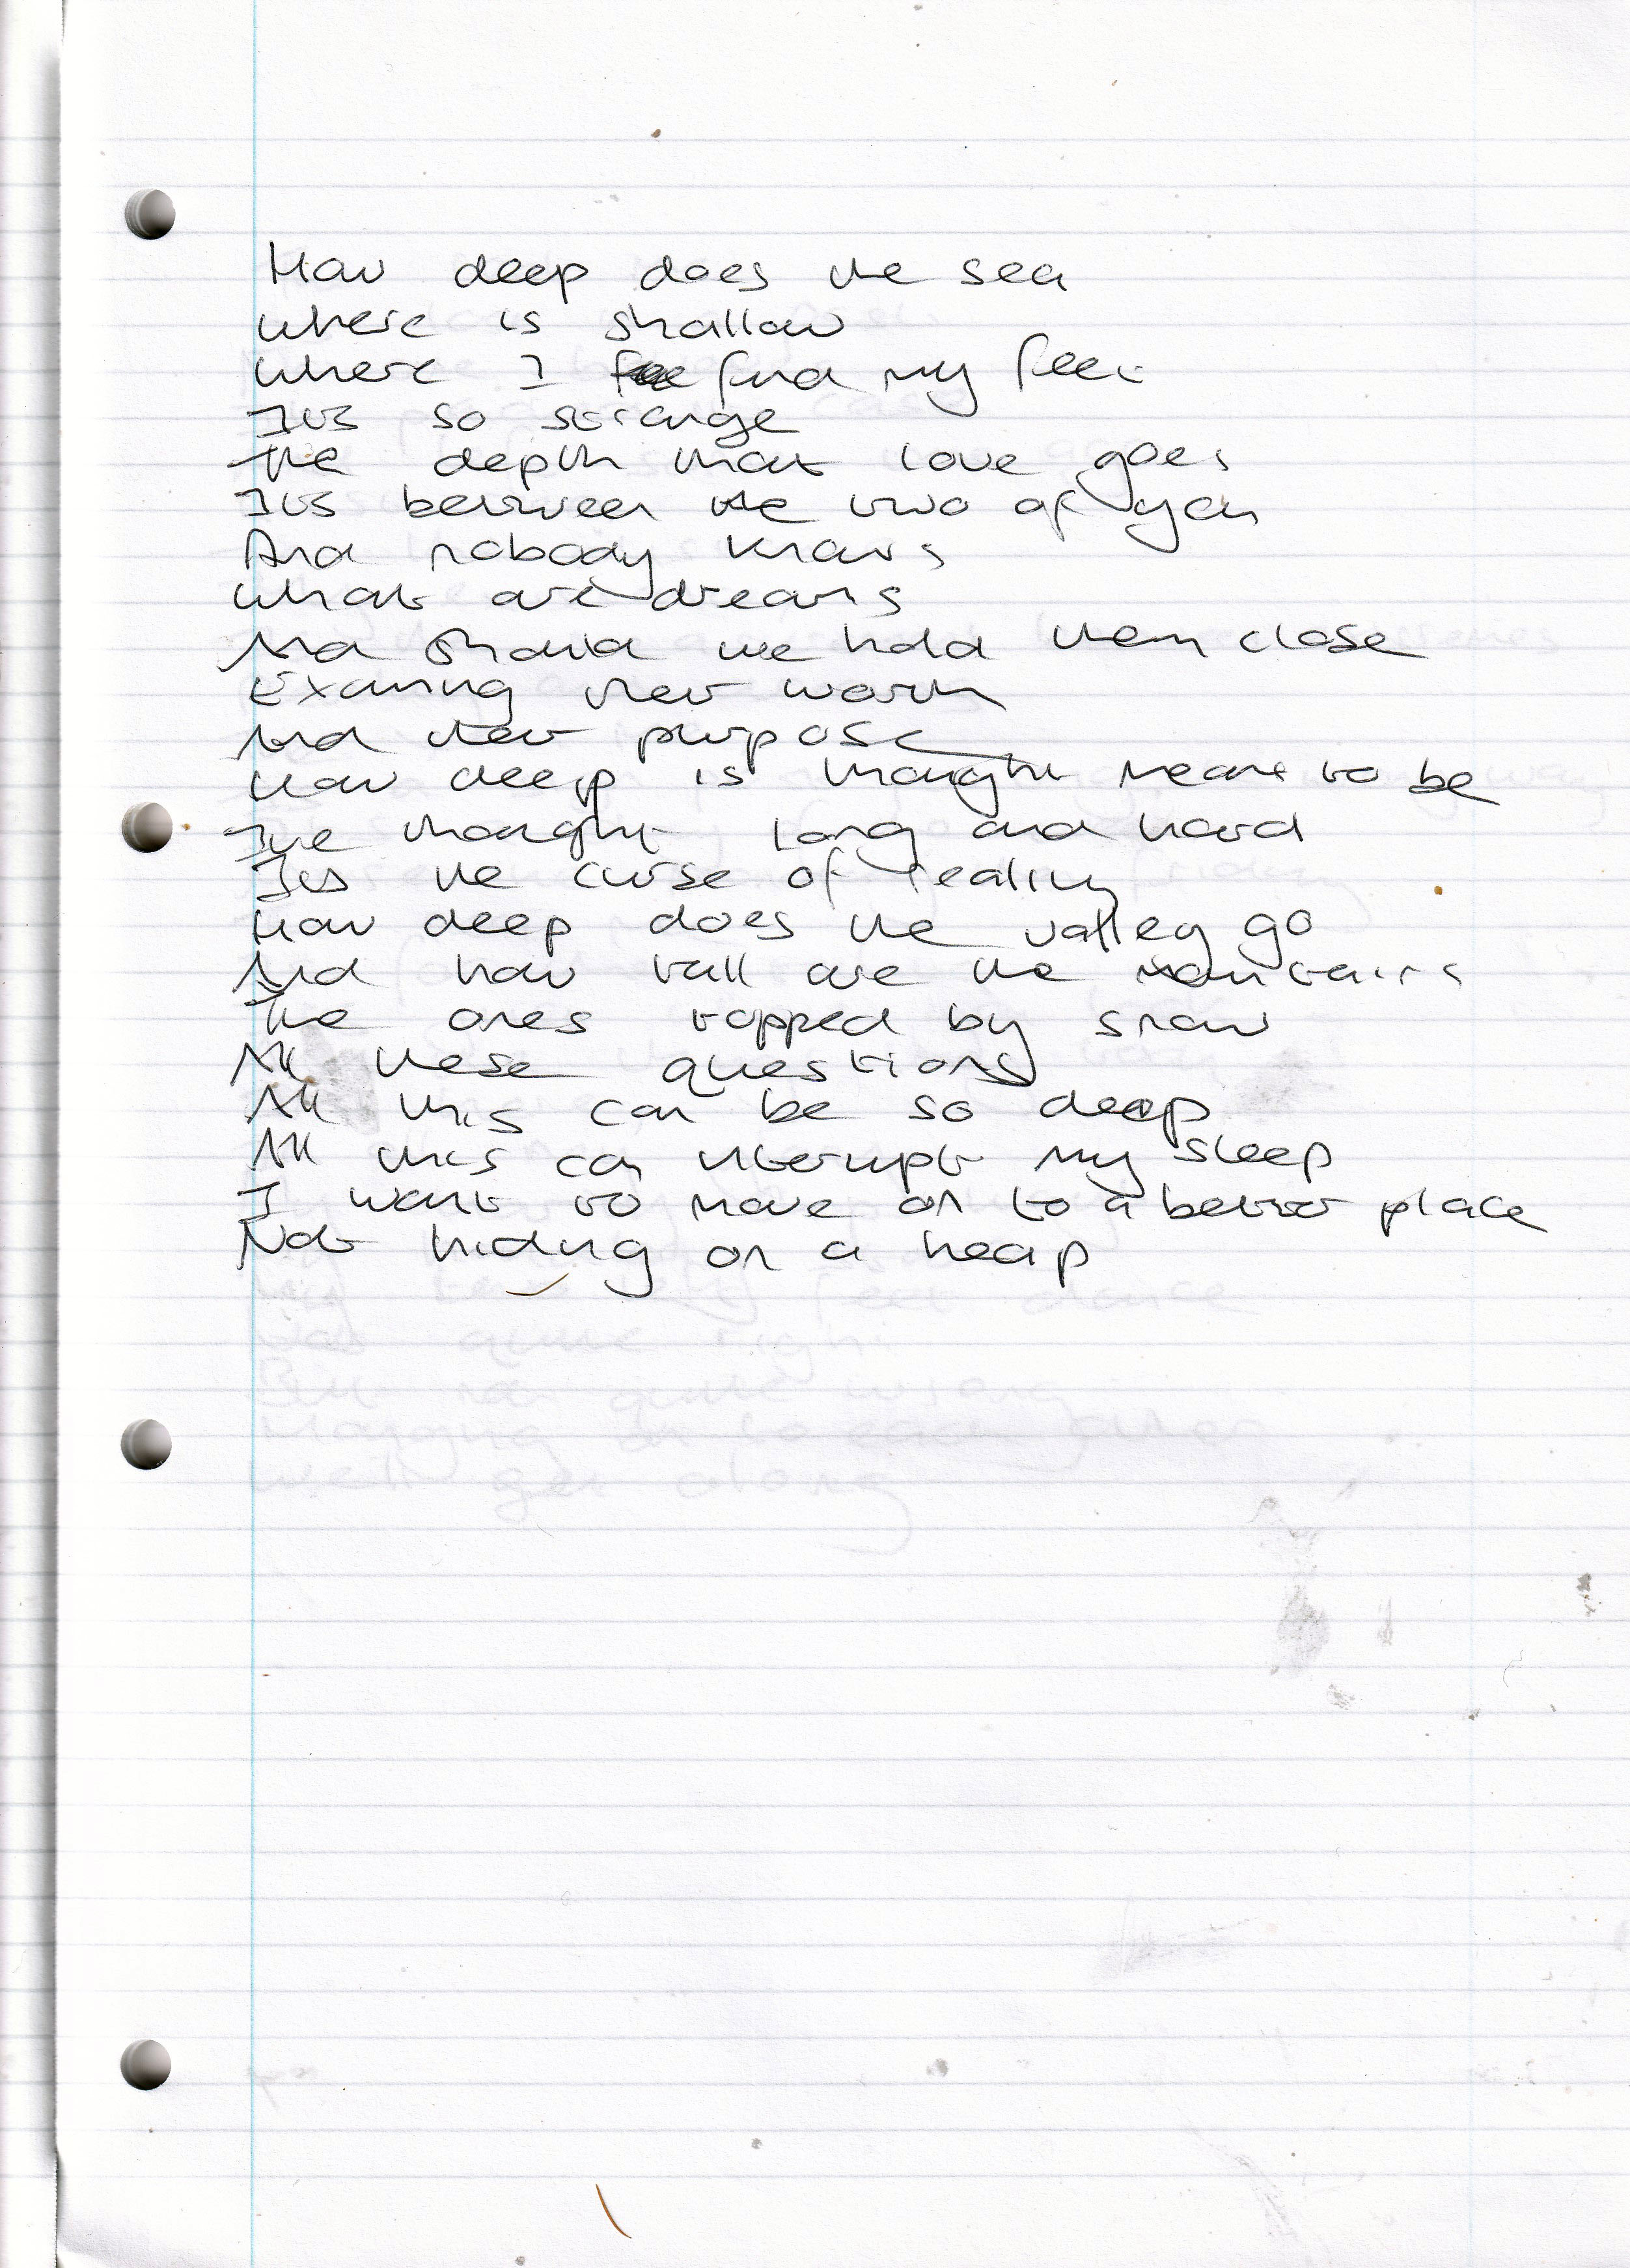 How deep does the sea
where is shallow
where I find my feet
Its so strange
The depth that love goes
Its between the two of you
And nobody knows
What are dreams
And should we hold them close
Examing their worth
And their purpose
How deep is thought meant to be
Ive thought long and hard
Its the curse of reality
How deep does the valley go
And how tall are the mountains
The ones topped by snow
All these questions
All this can be so deep
All this can interrupt my sleep
I want to move on to a better place
Not hiding on a heap
Not quite right
But not quite wrong
Hanging on to each other
We'll get along